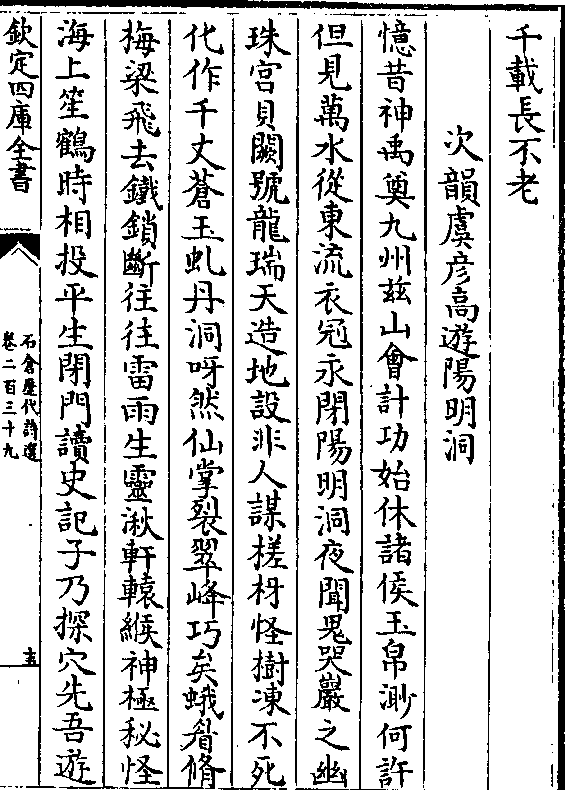 千載長不老
次韻虞彦高遊陽明洞
憶昔神禹奠九州兹山會計功始休諸侯玉帛渺何許
但見萬水從東流衣冠永閉陽明洞夜聞鬼哭巖之幽
珠宮貝闕號龍瑞天造地設非人謀槎枒怪樹凍不死
化作千丈蒼玉虬丹洞呀然仙掌裂翠峰巧矣蛾眉脩
梅梁飛去鐵鎖斷往往雷雨生靈湫軒轅緱神極秘怪
海上笙鶴時相投平生閉門讀史記子乃探穴先吾遊
欽定四庫全書
石倉歷代詩選
卷二百三十九
十五